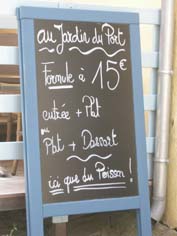 au Jardin du Port
Formule à 15€
entrée + Plat
ou
Plat + Dessert
ici que du Poisson !